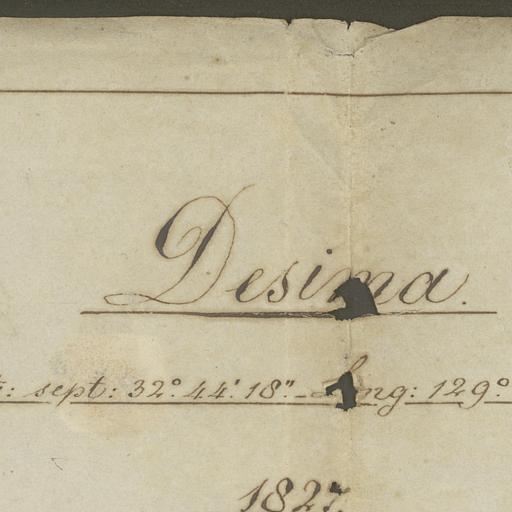 Desima.
: sept: 32° 44' 18" – Long: 129°
1827.